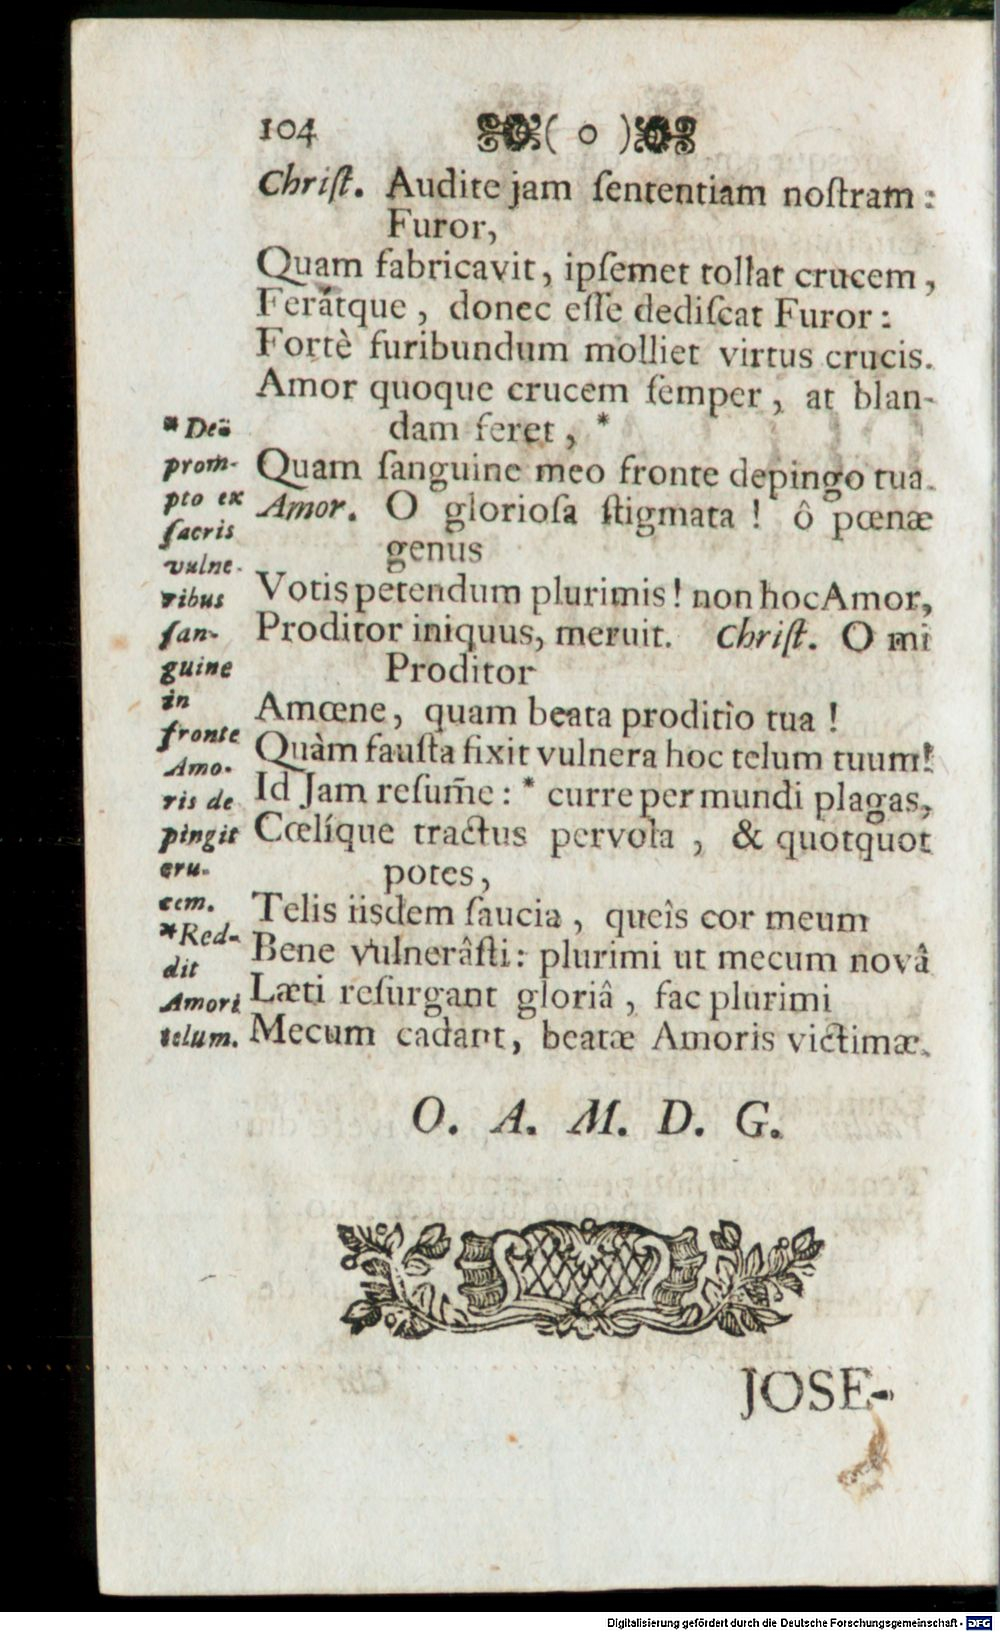 104 ( o )
Chriſt. Audite jam ſententiam noſtram:
Furor,
Quam fabricavit, ipſemet tollat crucem,
Ferátque, donec eſſe dediſcat Furor:
Fortè furibundum molliet virtus crucis.
Amor quoque crucem ſemper, at blan-
dam feret, *
Quam ſanguine meo fronte depingo tua.
Amor. O glorioſa ſtigmata! ô pœnæ
genus
Votis petendum plurimis! non hoc Amor,
Proditor iniquus, meruit. Chriſt. O mi
Proditor
Amœne, quam beata proditio tua!
Quàm fauſta fixit vulnera hoc telum tuum!
Id Jam reſum̃e: * curre per mundi plagas,
Cœlíque tractus pervola, & quotquot
potes,
Telis iisdem ſaucia, queîs cor meum
Bene vulnerâſti: plurimi ut mecum novâ
Læti reſurgant gloriâ, fac plurimi
Mecum cadant, beatæ Amoris victimæ.
prom-
pto ex
ſacris
vulne-
ribus
ſan-
guine
in
fronte
Amo-
ris de
pingit
cru-
cem.
*Red-
dit
Amori
telum.
O. A. M. D. G.
JOSE-
Digitalisierung gefördert durch die Deutsche Forschungsgemeinschaft - DFG